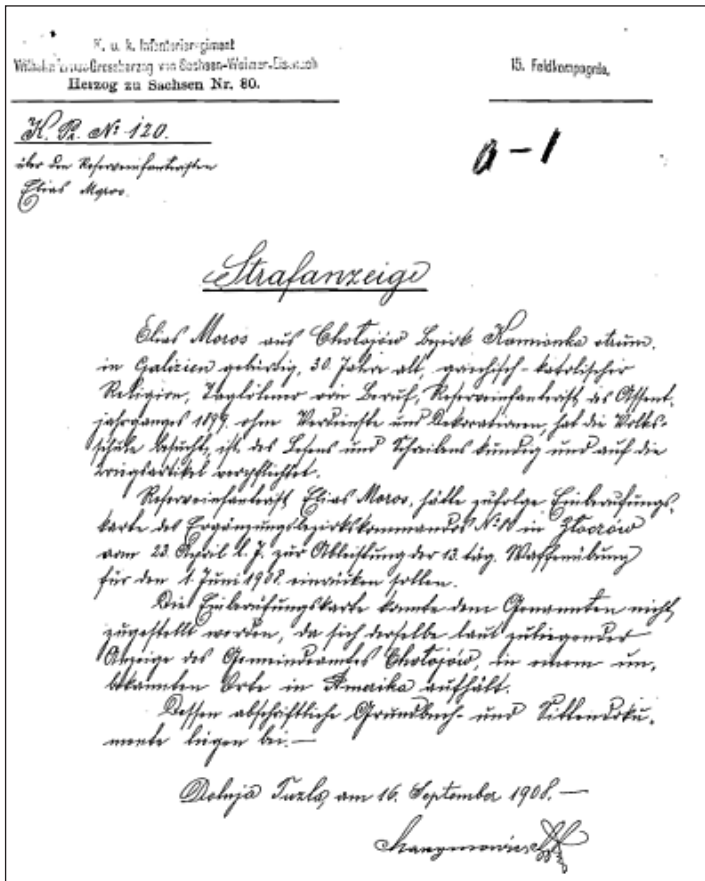 K. u. k. Infanterieregiment
Wilhelm Ernst Grossherzog von Sachsen-Weimar-Eisenach
Herzog zu Sachsen Nr. 80.
15. Feldkompagnie,
K. Pr. № 120.
über den Reserveinfanteristen
Elias Moros.
0-1
Strafanzeige
Elias Moros aus Chołojów Bezirk Kamionka strum.
in Galizien gebürtig, 30 Jahre alt, griechisch-katolischer
Religion, Taglöhner von Beruf, Reserveinfanterist des Assent-
jahrganges 1899, ohne Verdienste und Dekorationen, hat die Volks-
schule besucht, ist des Lesens und Schreibens kundig und auf die
Kriegsartikel verpflichtet.
Reserveinfanterist Elias Moros, hätte zufolge Einberufungs-
karte des Ergänzungsbezirkskommandos № in Złoczów
vom 23. April l. J. zur Ableistung der 13 täg. Waffenübung
für den 1. Juni 1908. einrücken sollen.
Die Einberufungskarte konnte dem Genannten nicht
zugestellt werden, da sich derselbe laut zuliegender
Anzeige des Gemeindeamtes Chołojów, in einem un-
bekannten Orte in Amerika aufhält.
Dessen abschriftliche Grundbuch- und Sittendoku-
mente liegen bei.—
Dolnja Tuzla, am 16. September 1908.—